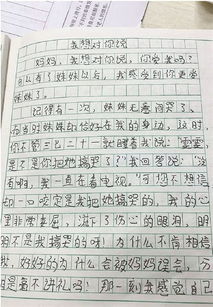 我想对你说
妈妈，我想对你说，你爱我吗？
自从有了妹妹以后，我感觉到你更爱
妹妹了。
记得有一次，妹妹无意间哭了，
而当时妹妹的恰好在我的身边，这时，
你不管三七二十一就瞪着我说：“
是不是你把她搞哭了？”我回答说：“没
有啊，我一直在看电视。”可您不相信
一口咬定是我把她搞哭的，我的心
里非常委屈，流下了伤心的眼泪，明明
不是我搞哭的呀！为什么不肯相信
我，好好的为什么会被妈妈误会，
是不讲礼吗！那一刻我感觉自